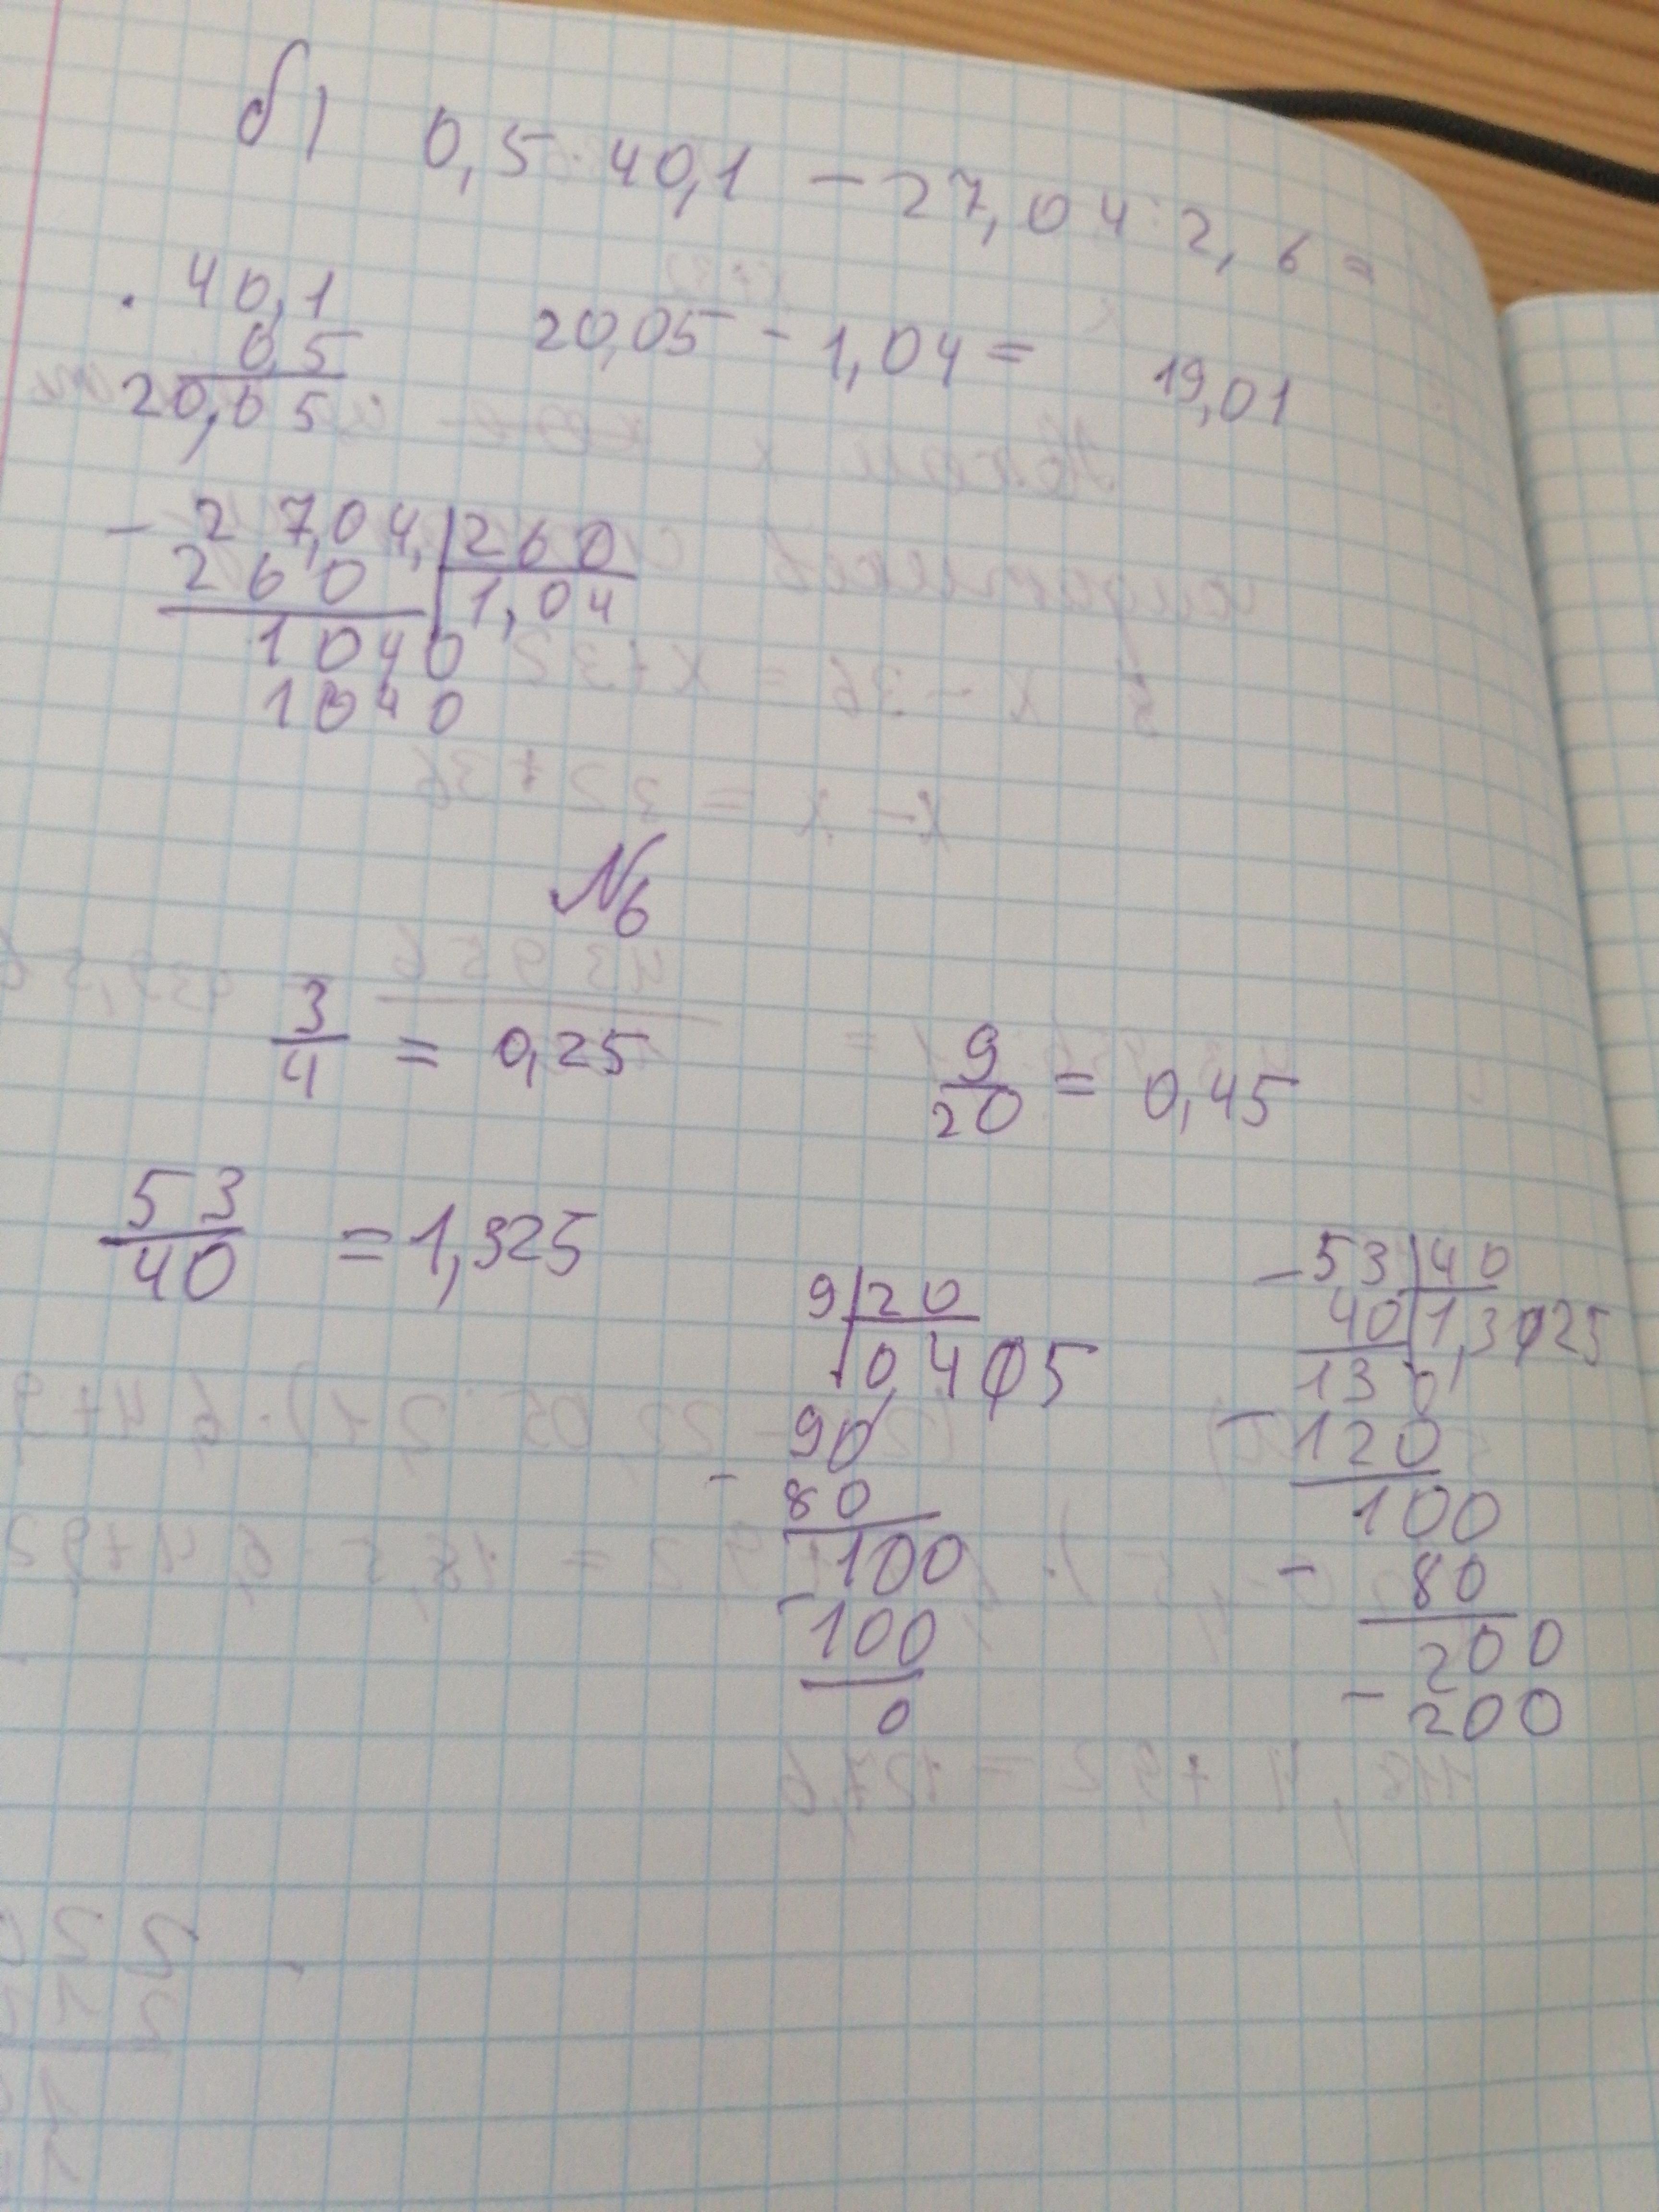 б) 0,5 · 40,1 - 27,04 : 2,6 =
· 40,1
0,5
20,05
20,05 - 1,04 = 19,01
- 27,04, | 260
260 | 1,04
1040
1040
№6
3/4 = 0,25
9/20 = 0,45
53/40 = 1,325
9 | 20
0,405
90
- 80
100
- 100
0
- 53 | 40
40 | 1,3025
130
- 120
100
- 80
200
- 200